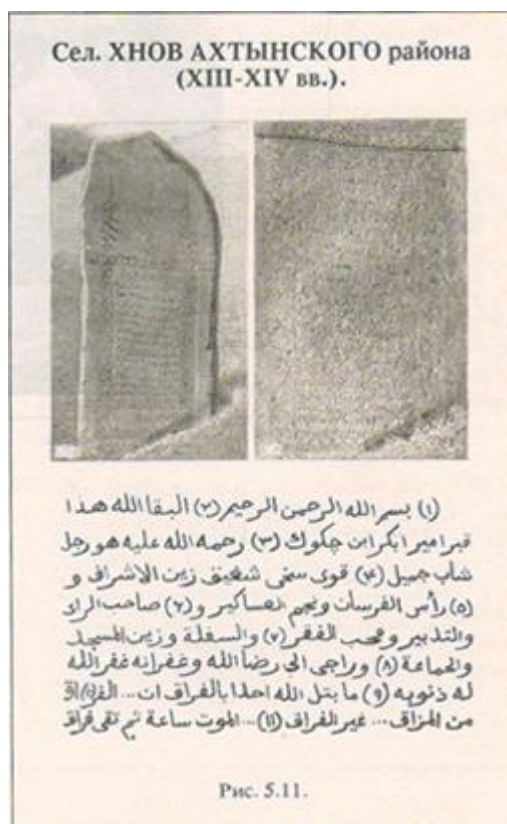 Сел. ХНОВ АХТЫНСКОГО района
(XIII-XIV вв.).
(١) بسم الله الرحمن الرحيم (٢) البقا الله هذا
قبر امير ابكر ابن چكوك (٣) رحمه الله عليه هو رجل
شاب جميل (۴) قوى سخى شفيق زين الاشراف و
(۵) رأس الفرسان ونجم العساكير و (٦) صاحب الراء
والتدبير و محب الفقر (٧) والسفلة وزين المسجد
والجماعة (٨) وراجى الى رضا الله وغفرانه غفر الله
له ذنوبه (٩) ما بتل الله احدا بالفراق ان ...
من ... غير الفراق (١١) ... الموت ساعة ثم تقى فراق
Рис. 5.11.